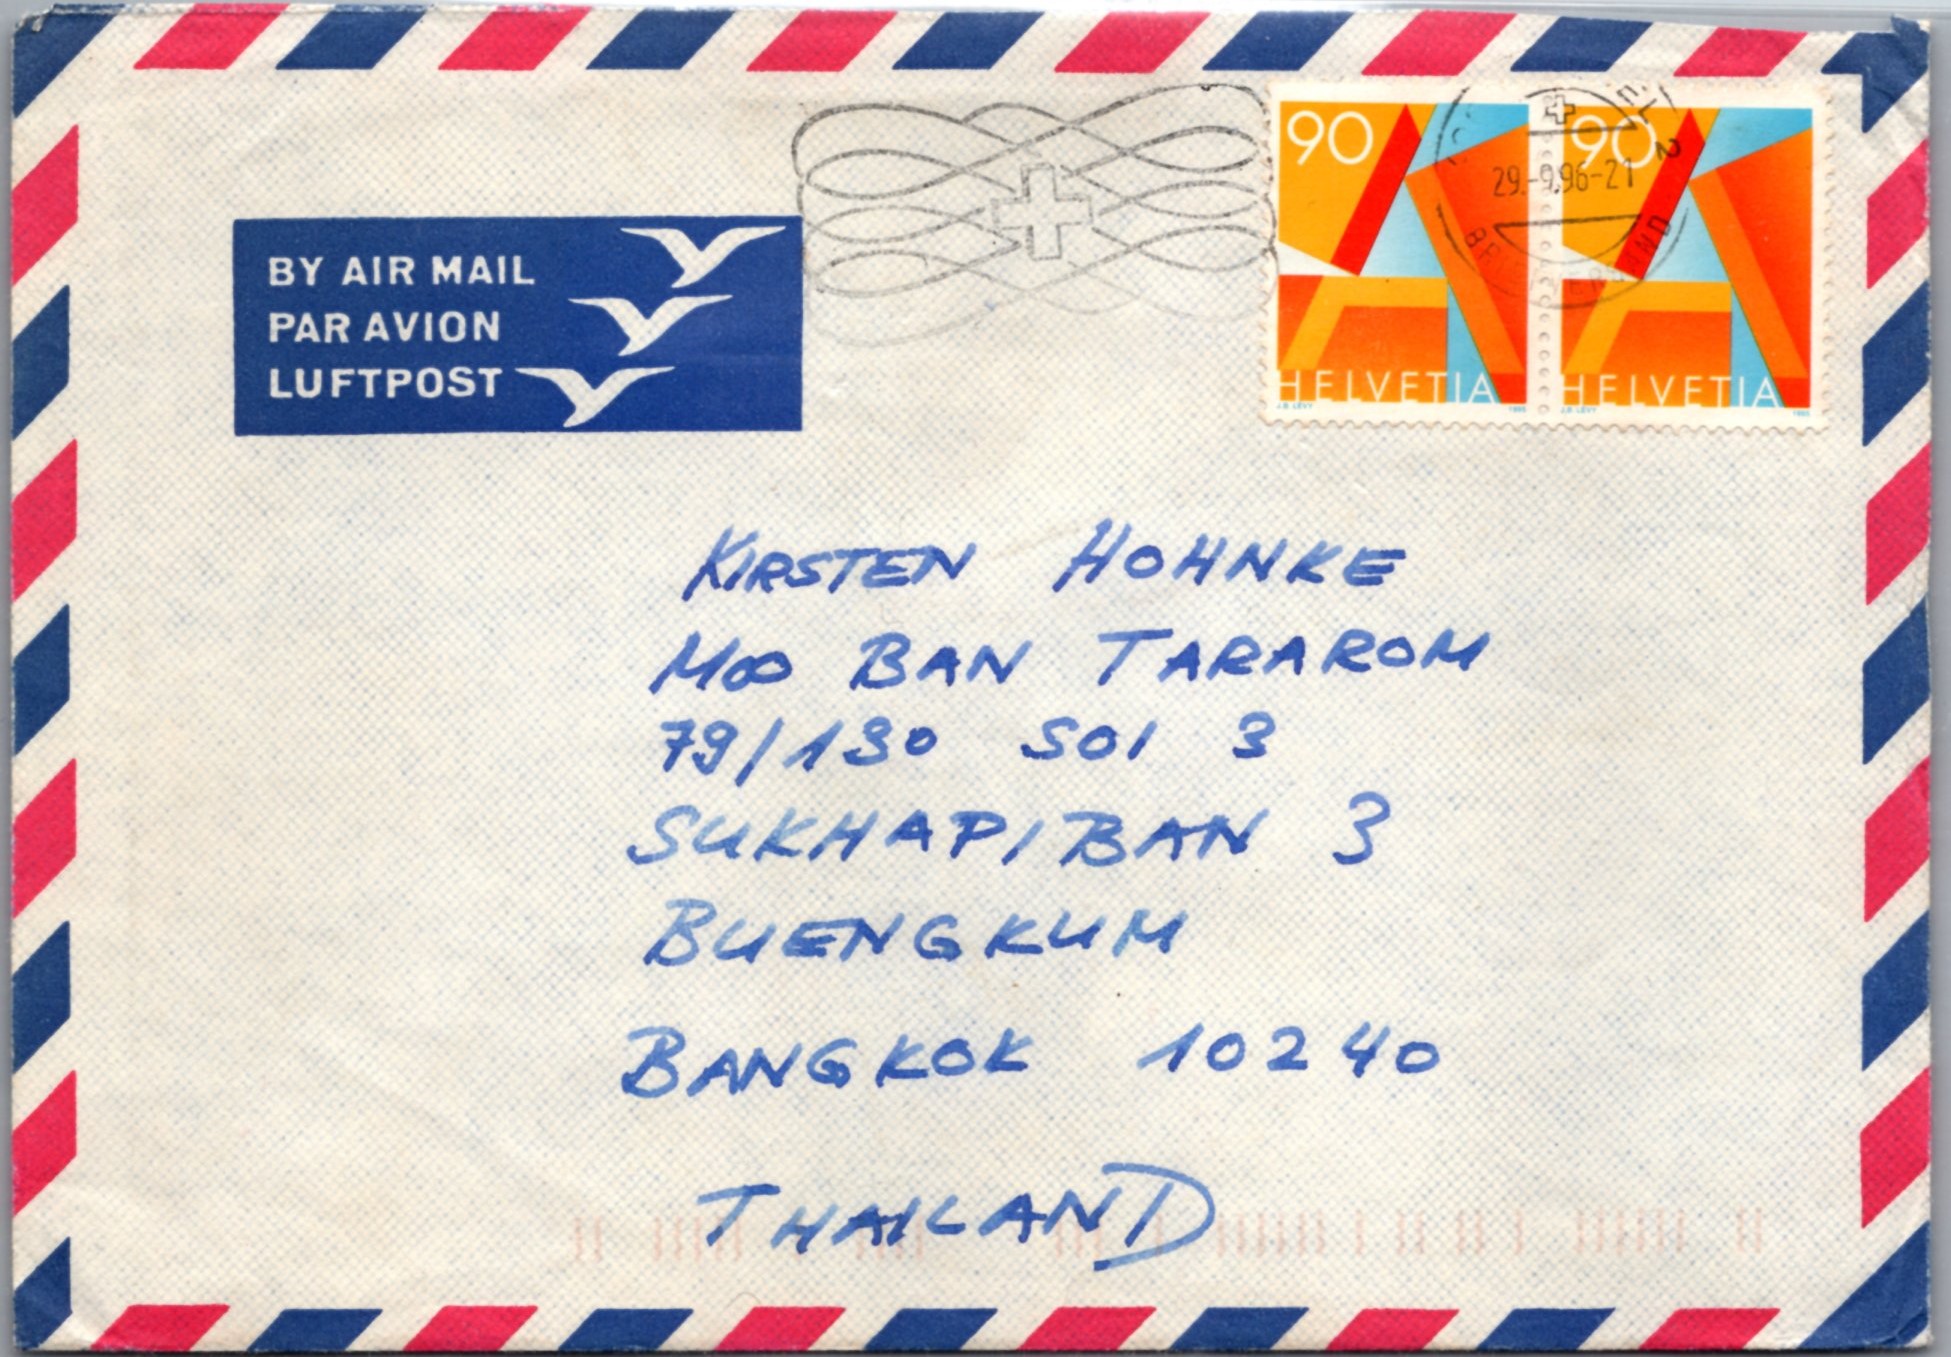 BY AIR MAIL
PAR AVION
LUFTPOST
90
HELVETIA
J.B. LÉVY 1995
90
HELVETIA
J.B. LÉVY 1995
29.-9.96-21
2
KIRSTEN HOHNKE
MOO BAN TARAROM
79/130 SOI 3
SUKHAPIBAN 3
BUENGKUM
BANGKOK 10240
THAILAND